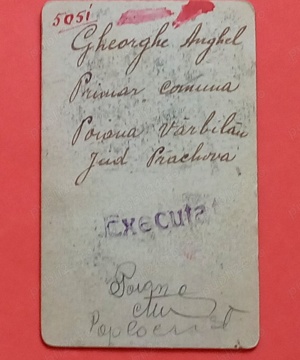 5051
Gheorghe Anghel
Primar comuna
Poiana Vărbilău
Jud Prachova
Executat
Poign